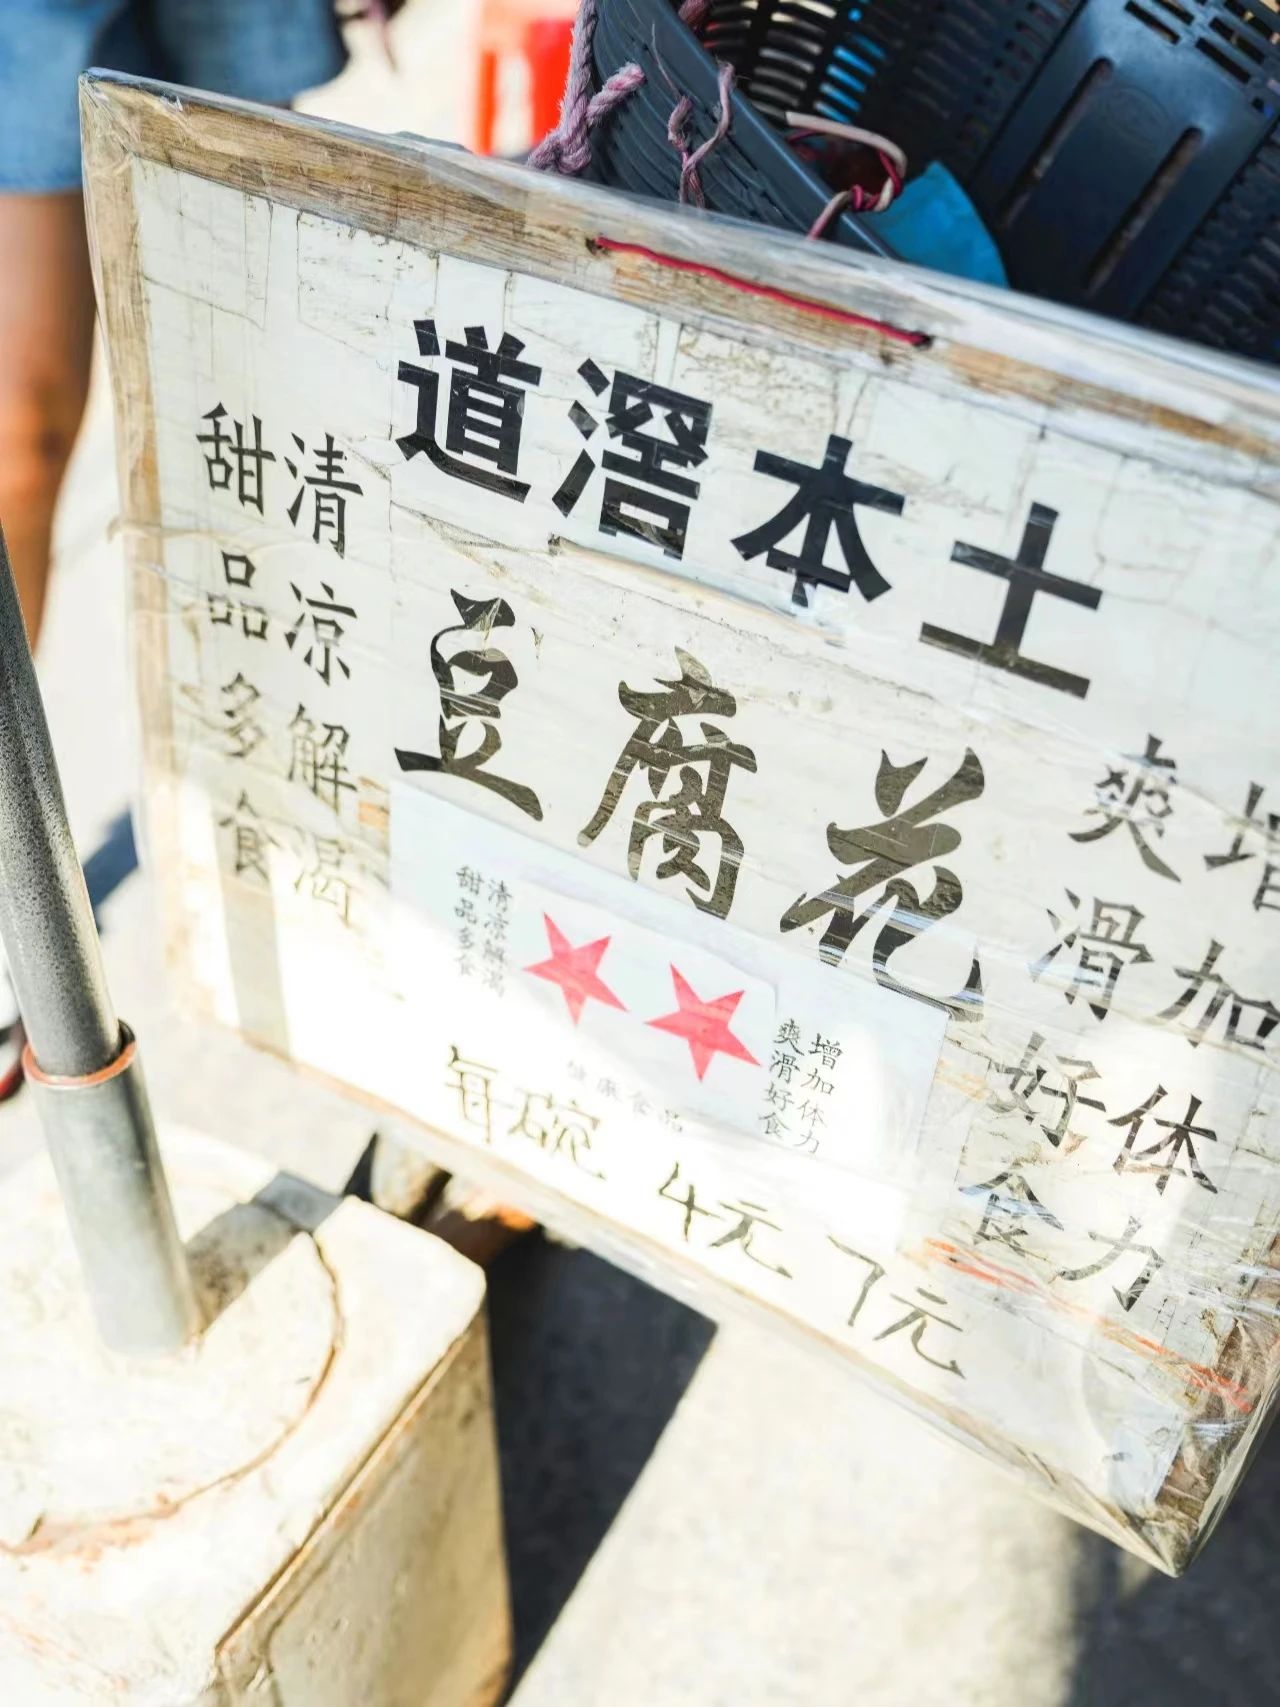 道滘本土
豆腐花
清凉解渴
甜品多食
增加体力
爽滑好食
清凉解渴
甜品多食
增加体力
爽滑好食
健康食品
每碗 4元 7元